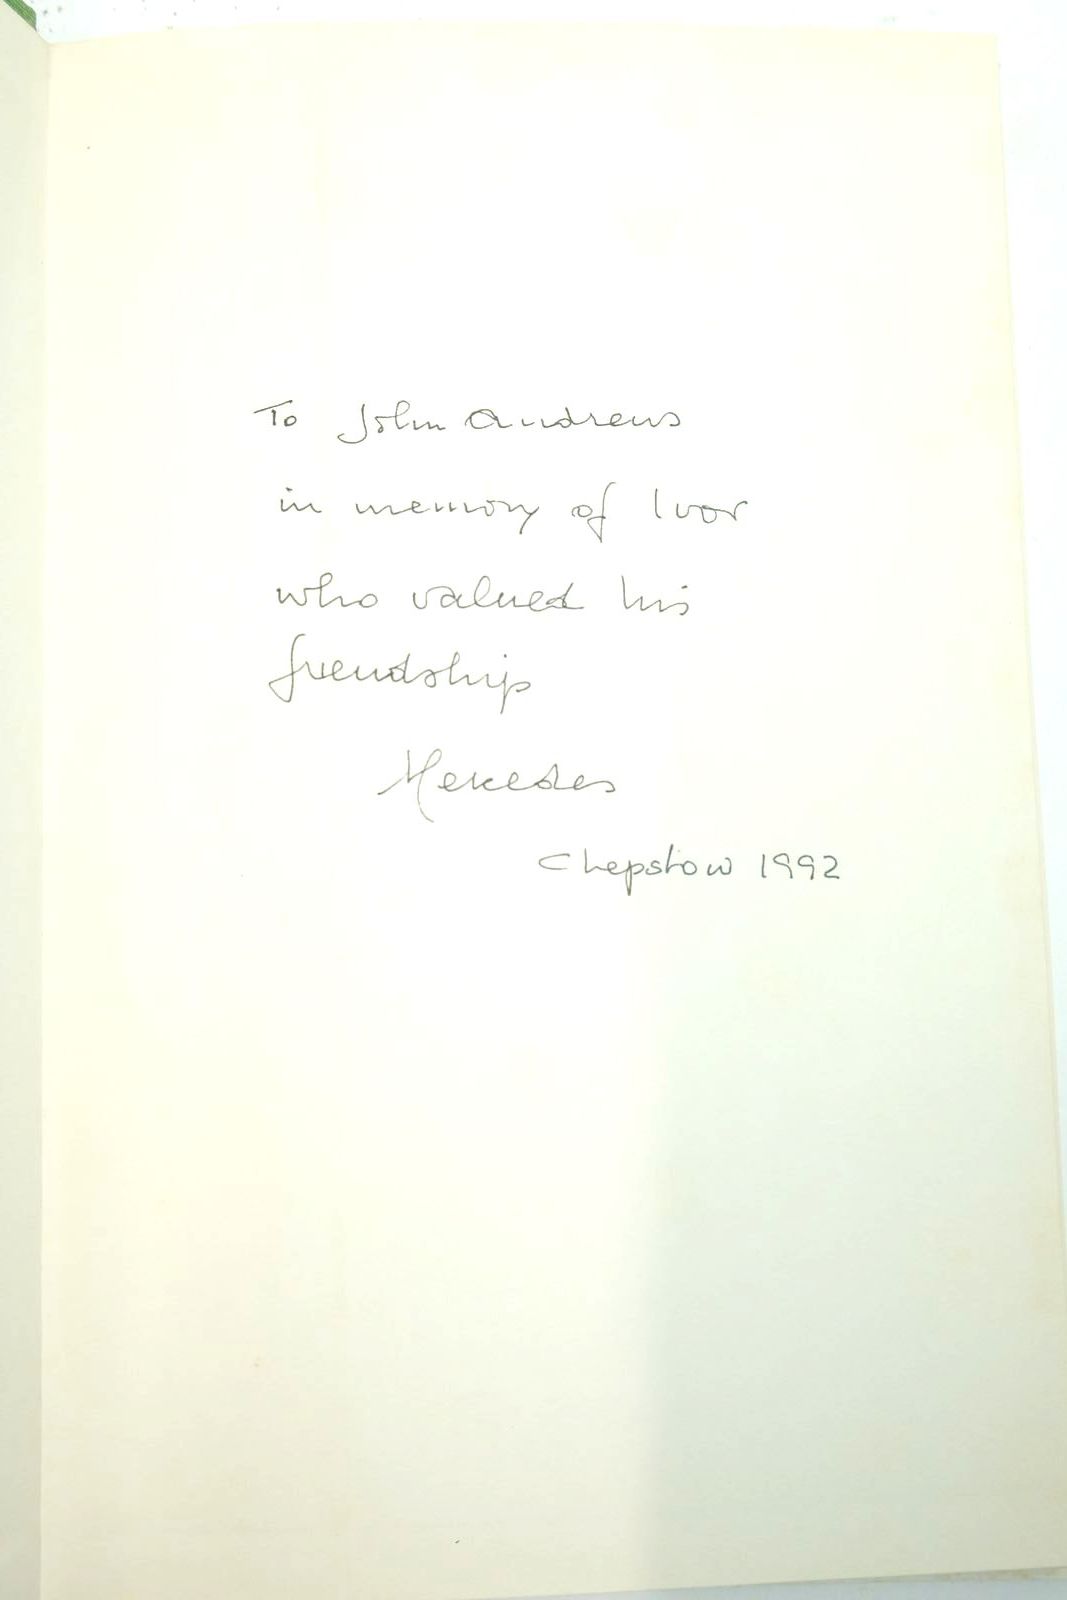 To John Andrews
in memory of Ivor
who valued his
friendship
Mercedes
Chepstow 1992